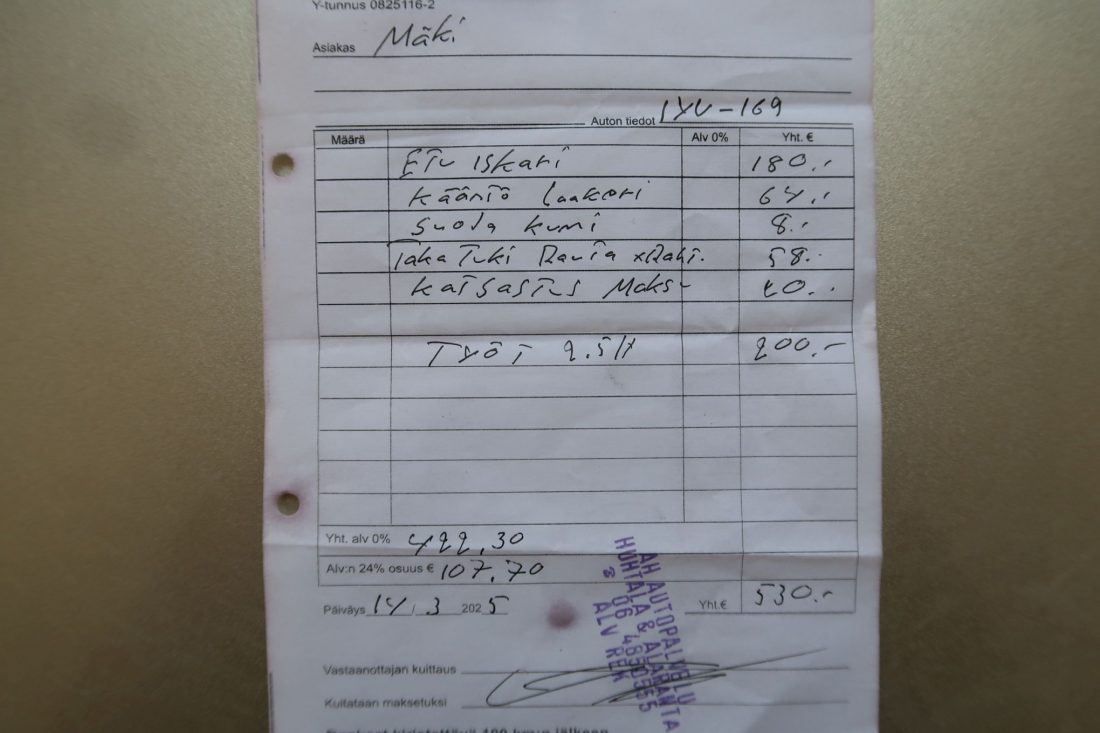 Y-tunnus 0825116-2
Asiakas Mäki
Auton tiedot IYU-169
Määrä Alv 0% Yht. €
Etu iskari 180.-
Kääntö laakeri 64.-
Suola kumi 8.-
Taka Tuki Rauta xRaht. 58.-
Katsastus Maksu 20.-
Työt 2.5H 200.-
Yht. alv 0% 422,30
Alv:n 24% osuus € 107,70
Päiväys 14.3 2025 Yht.€ 530.-
AH AUTOPALVELU
HUHTALA & ALARANTA
06 4850555
ALV REK
Vastaanottajan kuittaus
Kuitataan maksetuksi